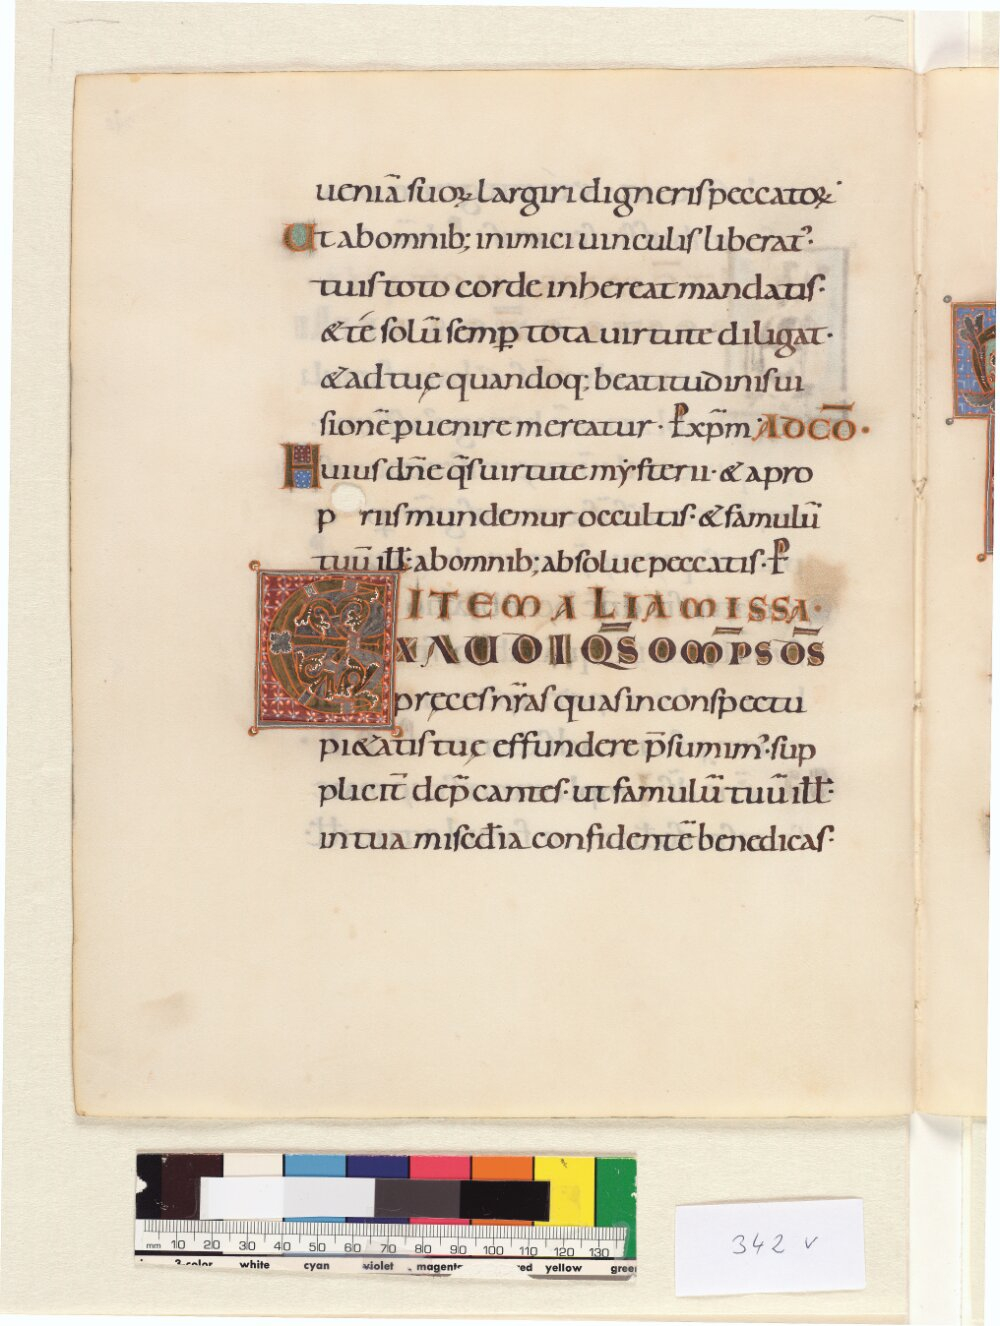 ueniā suoꝝ largiri digneris peccatoꝝ·
Ut ab omnib; inimici uinculis liberat᷒·
tuis toto corde inhereat mandatis·
& té solū semꝑ tota uirtute diligat·
& ad tuę quandoq; beatitudinis ui
sionē ꝑuenire mereatur· P̶ xp̄m AD CŌ·
Huius dn̄e q̄s uirtute mẏsterii· & a pro
p riis mundemur occultis· & famulū
tuū ill̄· ab omnib; absolue peccatis· P̶
ITEM ALIA MISSA·
EXAUDI Q̄S OM̄PS D̄S
pręces nr̄as quas in conspectu
pi&atis tuę effundere p̄sumim᷒· sup
plicit̄ dep̄cantes· ut famulū tuū ill̄·
in tua misc̄dia confidentē benedicas·
mm 10 20 30 40 50 60 70 80 90 100 110 120 130
3-color white cyan violet magenta red yellow green
342 v